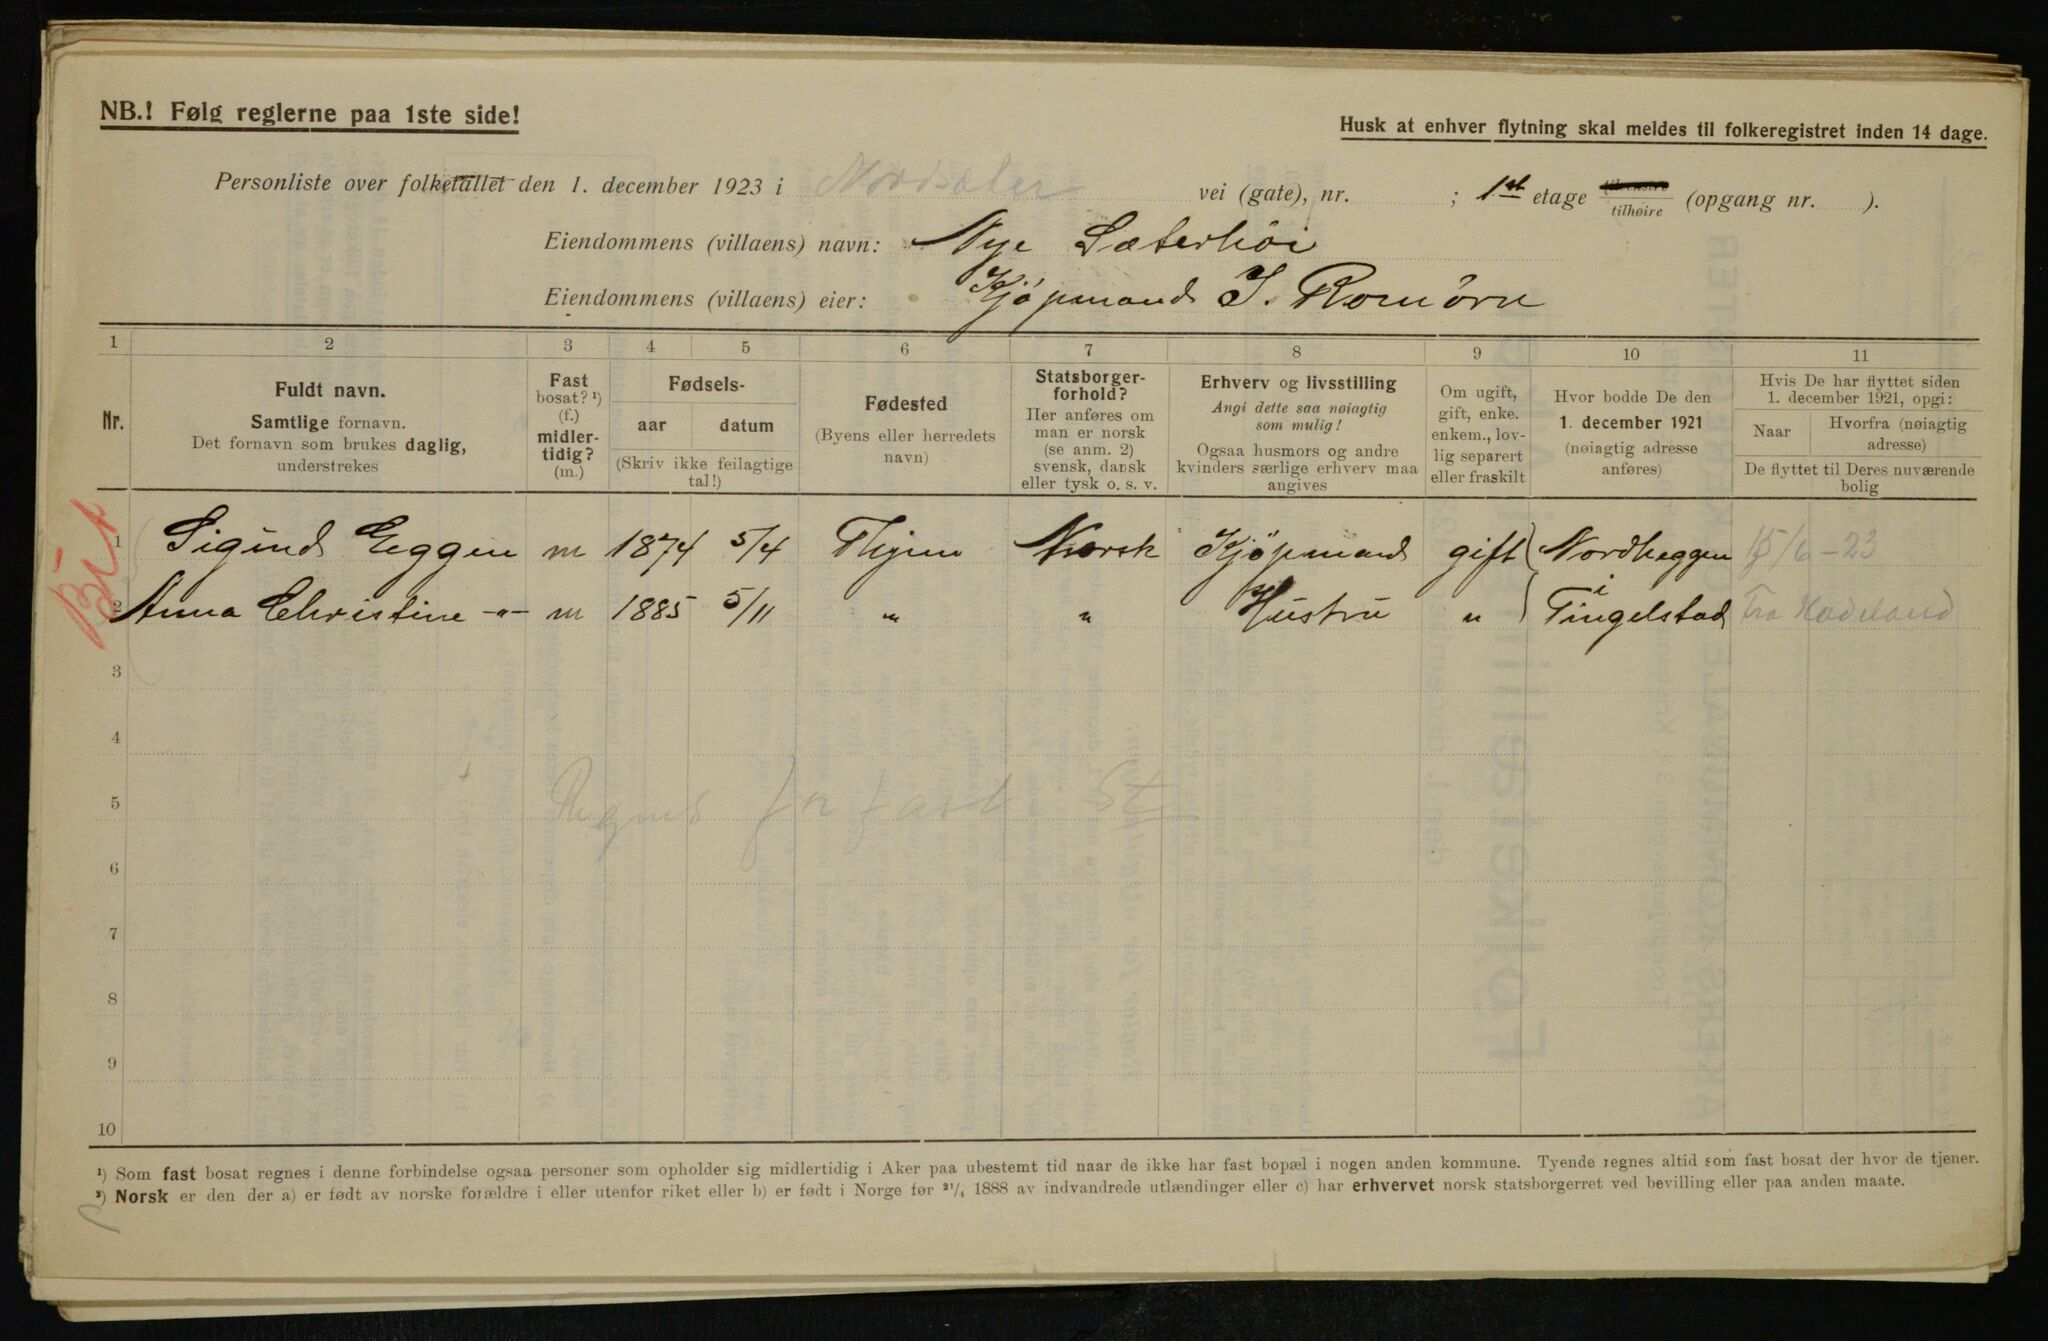 NB.! Følg reglerne paa 1ste side!
Husk at enhver flytning skal meldes til folkeregistret inden 14 dage.
Personliste over folketallet den 1. december 1923 i Nordsæter vei (gate), nr. ; 1ste etage til venstre tilhøire (opgang nr. ).
Eiendommens (villaens) navn: Nye Sæterhöi
Eiendommens (villaens) eier: Kjöpmand J. Romörn
1 2 3 4 5 6 7 8 9 10 11
Nr.
Fuldt navn.
Samtlige fornavn.
Det fornavn som brukes daglig,
understrekes
Fast
bosat? ¹)
(f.)
midler-
tidig?
(m.)
Fødsels-
aar datum
(Skriv ikke feilagtige
tal!)
Fødested
(Byens eller herredets
navn)
Statsborger-
forhold?
Her anføres om
man er norsk
(se anm. 2)
svensk, dansk
eller tysk o. s. v.
Erhverv og livsstilling
Angi dette saa nøiagtig
som mulig!
Ogsaa husmors og andre
kvinders særlige erhverv maa
angives
Om ugift,
gift, enke.
enkem., lov-
lig separert
eller fraskilt
Hvor bodde De den
1. december 1921
(nøiagtig adresse
anføres)
Hvis De har flyttet siden
1. december 1921, opgi:
Naar
Hvorfra (nøiagtig
adresse)
De flyttet til Deres nuværende
bolig
1 Sigurd Eggen m 1874 5/4 Norsk Kjöpmand gift Nordheggen 15/6-23
i
2 Anna Christine -"- m 1885 5/11 " " Hustru " Tingelstad Fra Hadeland
3
4
5
6
7
8
9
10
¹) Som fast bosat regnes i denne forbindelse ogsaa personer som opholder sig midlertidig i Aker paa ubestemt tid naar de ikke har fast bopæl i nogen anden kommune. Tyende regnes altid som fast bosat der hvor de tjener.
²) Norsk er den der a) er født av norske forældre i eller utenfor riket eller b) er født i Norge før ²¹/₄ 1888 av indvandrede utlændinger eller c) har erhvervet norsk statsborgerret ved bevilling eller paa anden maate.